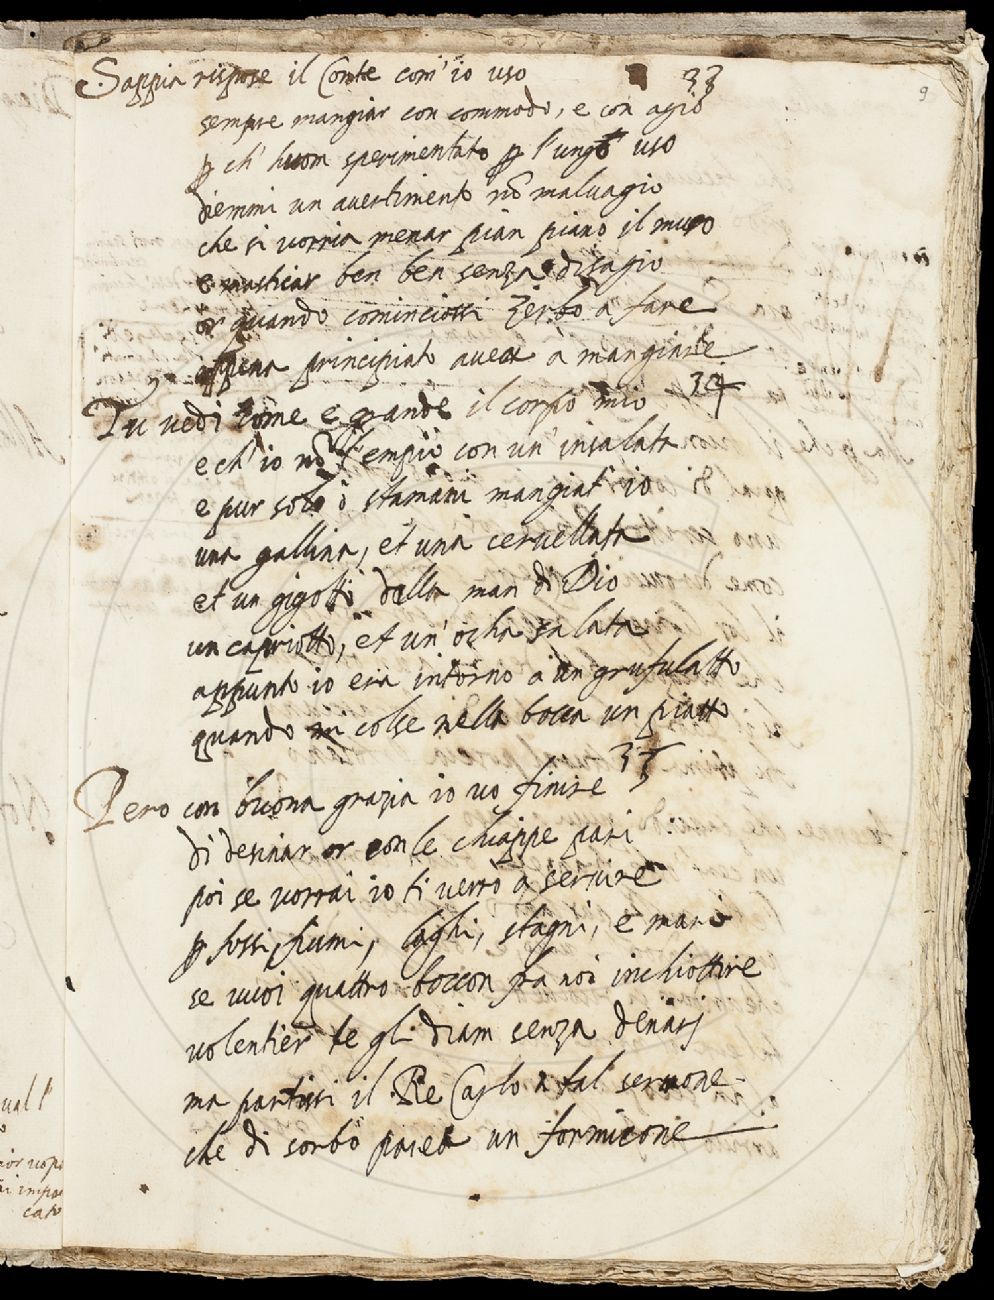 9
33
Sappia rispose il Conte com'io uso
sempre mangiar con commodo, e con agio
p ch' huom sperimentato p l'ungo uso
diemmi un avertimento nõ malvagio
che si vorria menar pian piano il muso
e masticar ben ben senza disagio
or quando cominciossi Zerbo a fare
appena principiato avea a mangiare
34
Tu vedi come e grande il corpo mio
e ch'io nõ l'empio con un'insalata
e pur solo ò stamani mangiat'io
una gallina, et una cervellata
et un gigotto dalla man di Dio
un capriotto, et un'ocha salata
appunto io era intorno a un grufulatto
quando mi colse nella bocca un piatto
35
Pero con buona grazia io vo finire
di desinar or con le chiappe pari
poi se vorrai io ti verrò a servire
p fossi, fiumi, laghi, stagni, e mari
se vuoi quattro boccon fra noi inchiottire
volentier te gli diam senza denarj
ma partissi il Re Carlo a tal sermone
che di sorbo parea un formicone
ual l'
cato